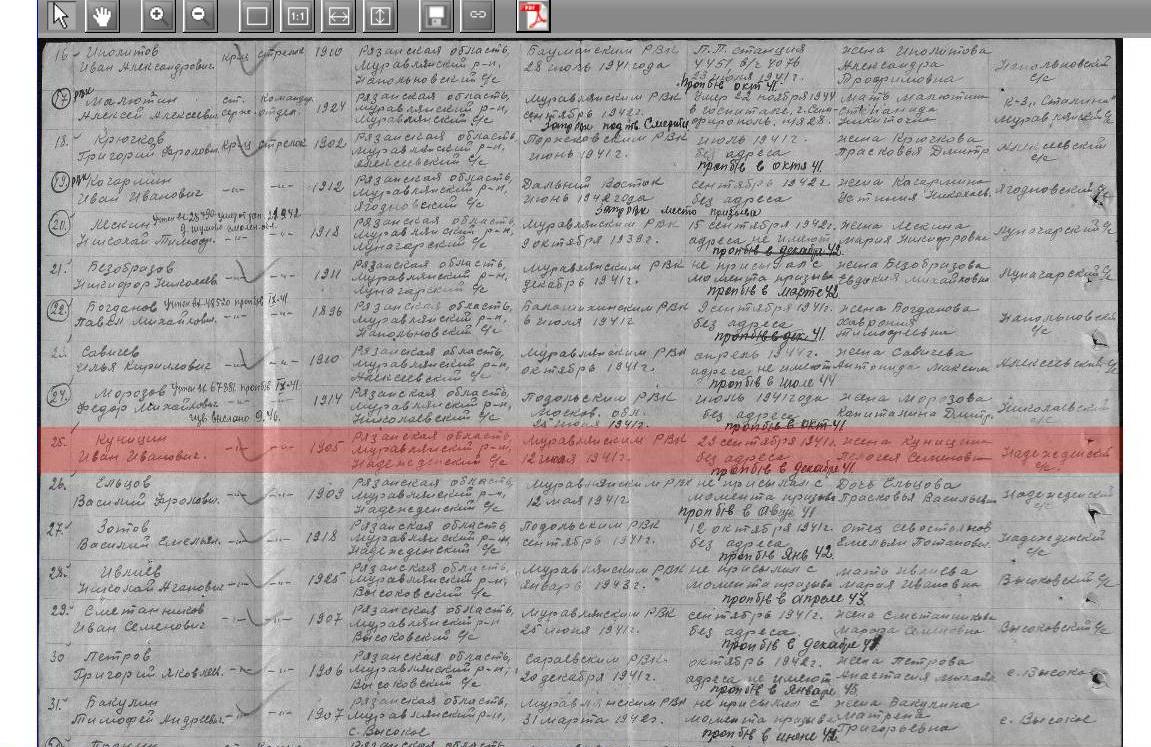 1:1
PDF
16 Иполитов
Иван Александрович крас стрелок 1910 Рязанская область, Муравлянский р-н, Напольновский с/с
Бауманским РВК 28 июль 1941 года
П.П. станция 4451, п/г 4076 23 июня 1941г.
пропб/в окт 41.
жена Иполитова Александра Трофимовна
Напольновский с/с
17 Малютин
Алексей Алексеевич ст. серж. командир отдел. 1924 Рязанская область, Муравлянский р-н, Муравлянский с/с
Муравлянским РВК сентябрь 1942г.
умер 22 ноября 1944 в госпитале,
мать Малютина Никитична
к-з "Сталина" Муравлянский с/с
18. Крючков
Григорий Фролович крас стрелок 1902 Рязанская область, Муравлянский р-н, Алексеевский с/с
РВК июнь 1941г.
июль 1941г. без адреса
пропб/в окт 41.
жена Крючкова Прасковья Дмитр
Алексеевский с/с
19 Когарлин
Иван Иванович -"- -"- 1912 Рязанская область, Муравлянский р-н, Ягодновский с/с
Дальний Восток июнь 1942 года
сентябрь 1942г без адреса
запрос место призыва
жена Устиния Николаев.
Ягодновский с/с
20. Лескин
Николай Тимоф. -"- -"- 1918 Рязанская область, Муравлянский р-н, Луначарский с/с
Муравлянским РВК 9 октября 1939г.
15 сентября 1942г. адреса не имеют
пропб/в декабре 42
жена Лескина Мария Никифровна
Луначарский с/с
21. Безобразов
Никифор Николаев -"- -"- 1911 Рязанская область, Муравлянский р-н, Луначарский с/с
Муравлянским РВК декабрь 1941г.
не присылал с момента призыва
пропб/в марте 42
жена Безобразова Евдокия Михайловна
Луначарский с/с
22. Богданов
Павел Михайлович. -"- -"- 1896 Рязанская область, Муравлянский р-н, Напольновский с/с
Балашихинским РВК 6 июля 1941г
9 сентября 1941г. без адреса
пропб/в дек. 41.
жена Богданова Хаврония Тимофеевна
Напольновский с/с
23. Савичев
Илья Кириллович -"- -"- 1910 Рязанская область, Муравлянский р-н, Алексеевский с/с
Муравлянским РВК октябрь 1941г.
апрель 1944г. адреса не имеют
пропб/в июле 44
жена Савичева Антонида Максим
Алексеевский с/с
24. Морозов
Федор Михайлович -"- 1914 Рязанская область, Муравлянский р-н, Николаевский с/с
изв. выслано 9.46.
Подольским РВК Москов. обл. 1941г.
июль 1941 года без адреса
пропб/в окт 41
жена Морозова Капиталина Дмитр.
Николаевский с/с
25. Куницин
Иван Иванович. -"- -"- 1905 Рязанская область, Муравлянский р-н, Надежденский с/с
Муравлянским РВК 12 июля 1941г.
23 сентября 1941г. без адреса
пропб/в декабре 41
жена Куницина Пелогея Семеновна
Надежденский с/с
26. Ельцов
Василий Фролович. -"- -"- 1909 Рязанская область, Муравлянский р-н, Надежденский с/с
Муравлянским РВК 12 мая 1941г.
не присылал с момента призыва
пропб/в авг 41
Дочь Ельцова Прасковья Васильевн
Надежденский с/с
27. Зотов
Василий Емельян. -"- -"- 1918 Рязанская область, Муравлянский р-н, Надежденский с/с
Подольским РВК сентябрь 1941г.
12 октября 1941г. без адреса
пропб/в янв 42
отец Севостьянов Емельян Потапович.
Надежденский с/с
28. Ивлиев
Николай Аганович -"- -"- 1925 Рязанская область, Муравлянский р-н, Высоковский с/с
Муравлянским РВК январь 1943г.
не присылал с момента призыва
пропб/в апреле 43.
мать Ивлиева Мария Ивановна
Высоковский с/с
29. Сметанников
Иван Семенович -"- -"- 1907 Рязанская область, Муравлянский р-н, Высоковский с/с
Муравлянским РВК 25 июня 1941г.
сентябрь 1941г. без адреса
пропб/в декабре 41
жена Сметанникова Семеновна
Высоковский с/с
30 Петров
Григорий Яковлев. -"- -"- 1906 Рязанская область, Муравлянский р-н, Высоковский с/с
Сараевским РВК. 20 декабря 1941г.
октябрь 1942г. адреса не имеют
пропб/в январе 43.
жена Петрова Анастасия
с. Высокое
31. Бакулин
Тимофей Андреевич -"- -"- 1907 Рязанская область, Муравлянский р-н, с. Высокое
Муравлянским РВК 31 марта 1942г.
не присылал с момента призыва
пропб/в июне 42
жена Бакулина Матрена Григорьевна
с. Высокое